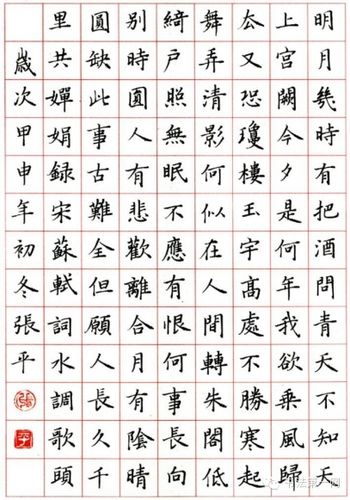 明月幾時有把酒問青天不知天
上宮闕今夕是何年我欲乘風歸
厺又恐瓊樓玉宇高處不勝寒起
舞弄清影何似在人間轉朱閣低
綺戶照無眠不應有恨何事長向
別時圓人有悲歡離合月有陰晴
圓缺此事古難全但願人長久千
里共嬋娟録宋蘇軾詞水調歌頭
歲次甲申年初冬張平